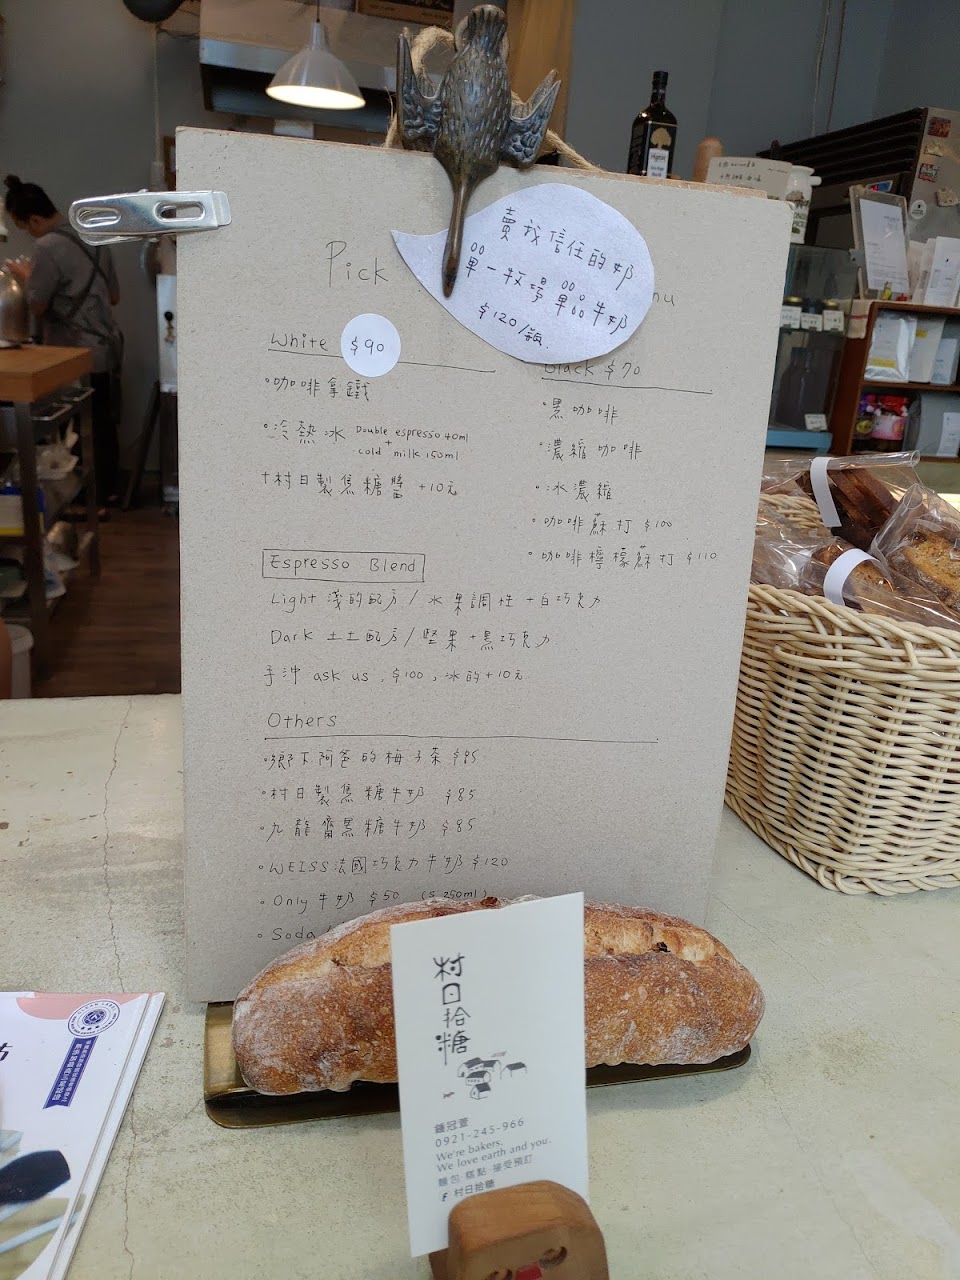 賣我信任的奶
單一牧場單品牛奶
$120/瓶
Pick
nu
White $90
°咖啡拿鐵
°冷熱冰 Double espresso 40ml
+
cold milk 150ml
+村日製焦糖醬 +10元
Black $70
°黑咖啡
°濃縮咖啡
°冰濃縮
°咖啡蘇打 $100
°咖啡檸檬蘇打 $110
Espresso Blend
Light 淺的配方/水果調性+白巧克力
Dark 土土配方/堅果+黑巧克力
手沖 ask us, $100, 冰的+10元
Others
°鄉下阿爸的梅子茶 $85
°村日製焦糖牛奶 $85
°九龍齋黑糖牛奶 $85
°WEISS法國巧克力牛奶 $120
°Only 牛奶 $50 ($ 250ml)
°Soda /
村日拾糖
鍾冠萱
0921-245-966
We're bakers.
We love earth and you.
麵包·糕點·接受預訂
村日拾糖